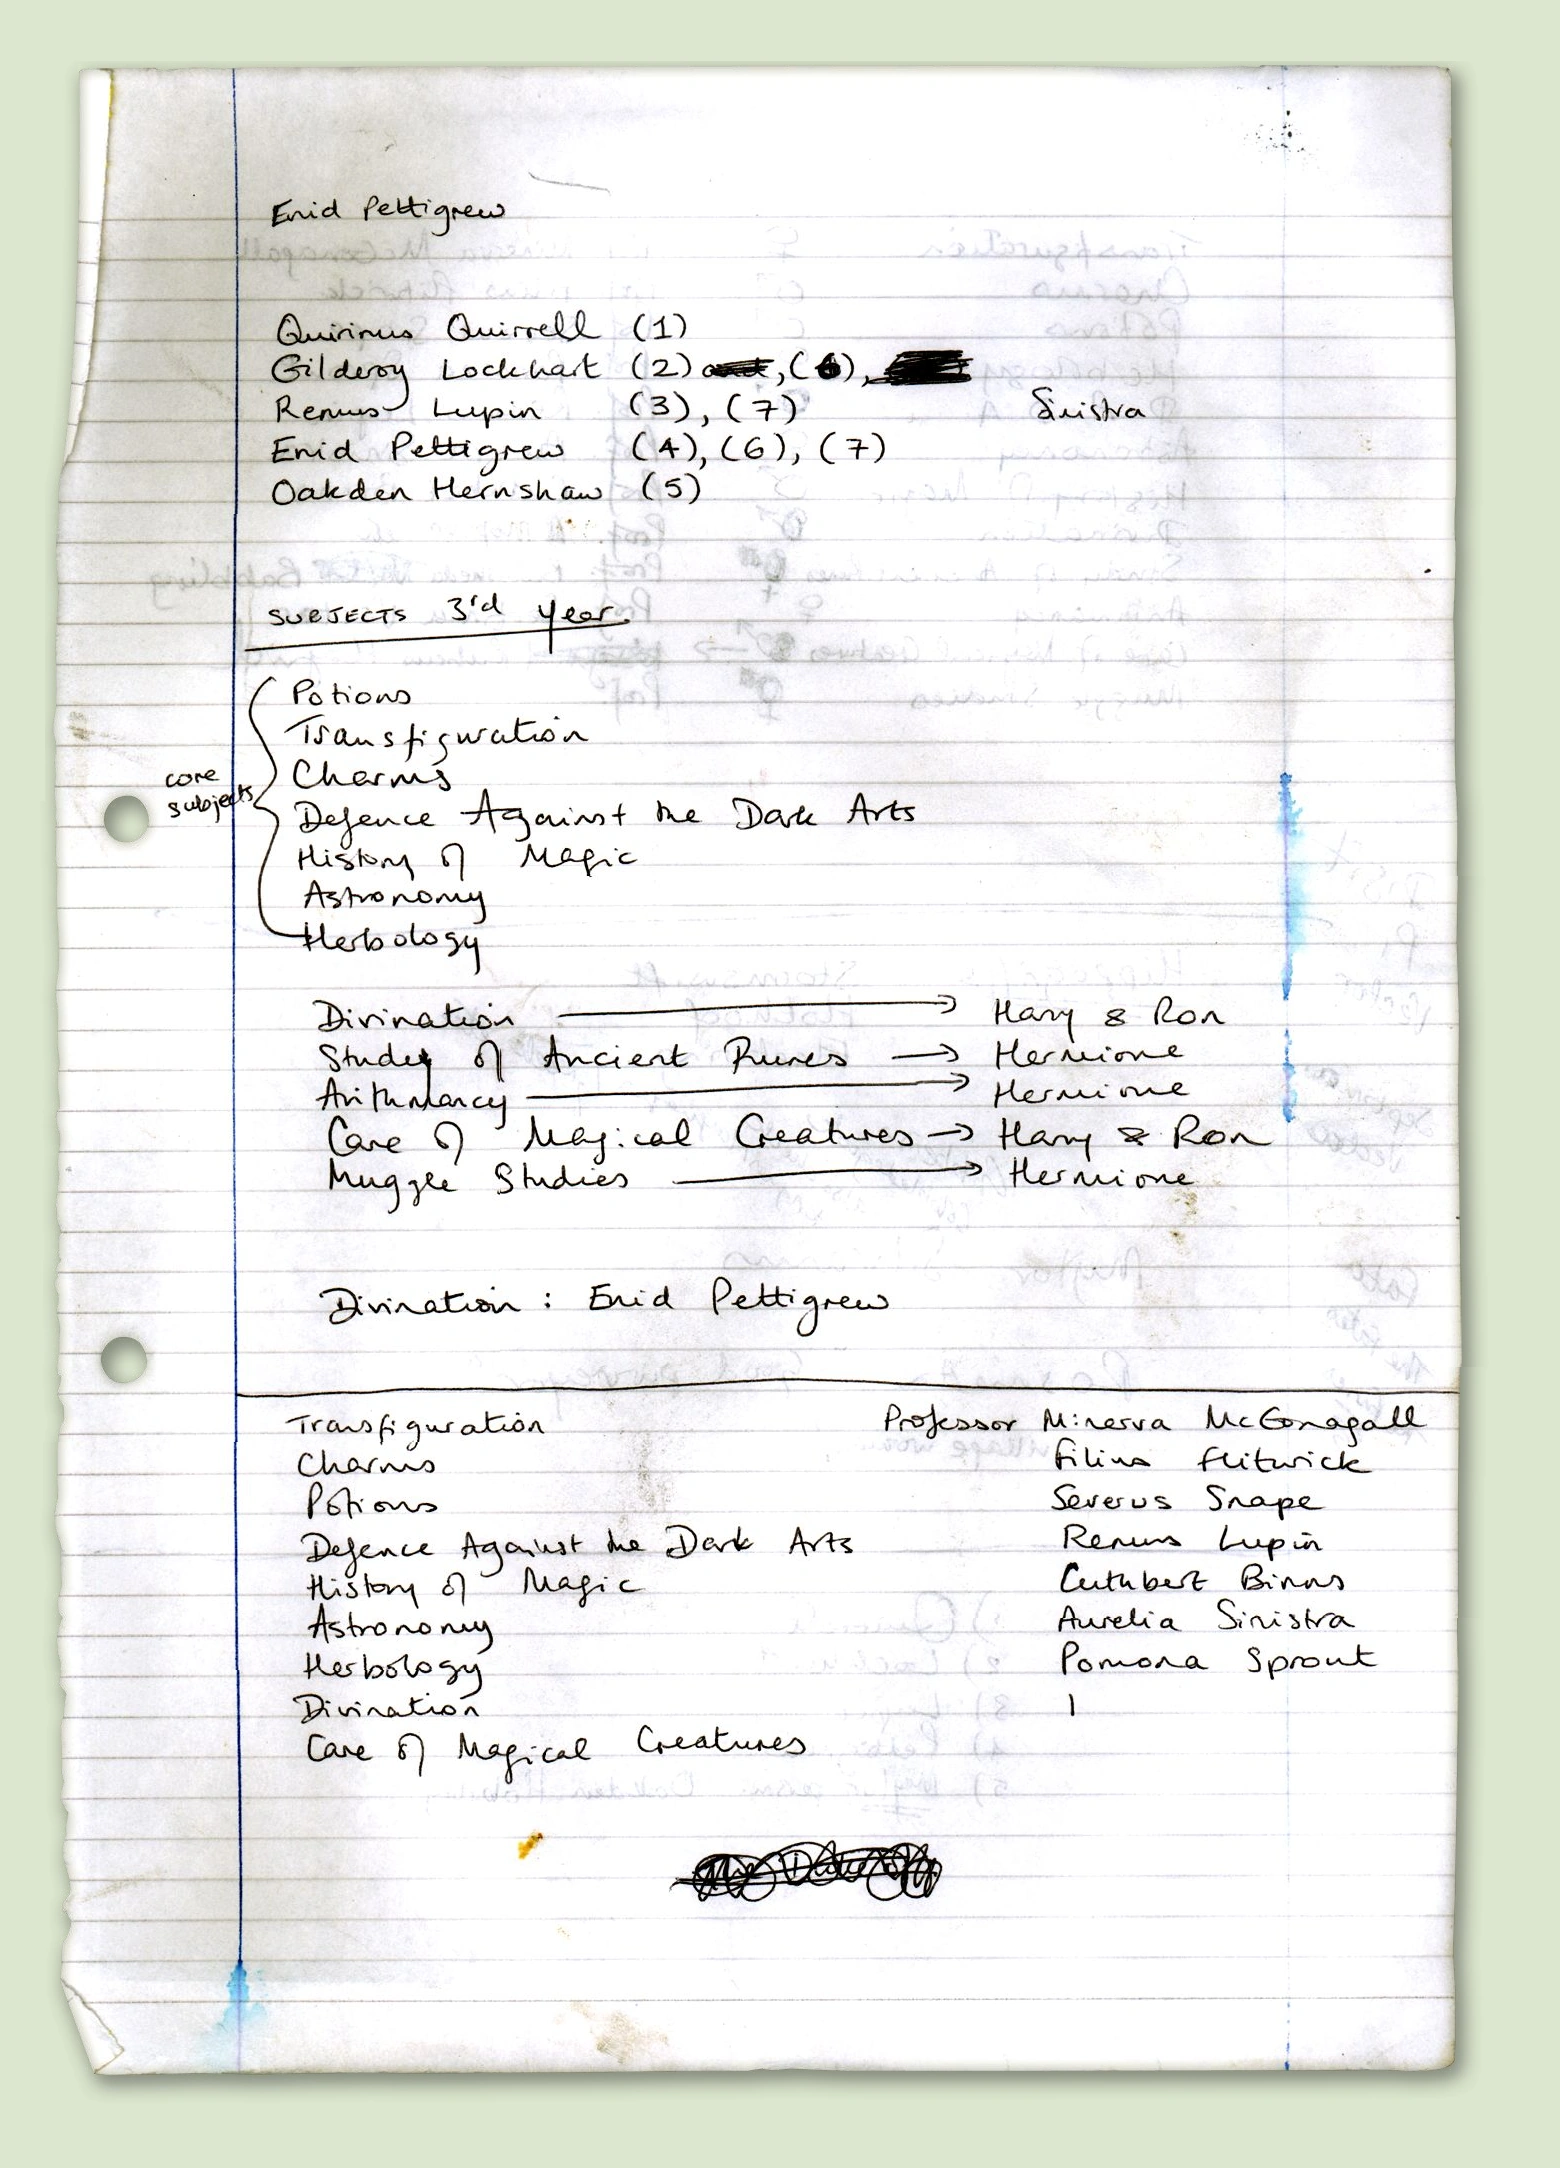 Enid Pettigrew
Quirinus Quirrell (1)
Gilderoy Lockhart (2), (6),
Remus Lupin (3), (7)
Sinistra
Enid Pettigrew (4), (6), (7)
Oakden Hernshaw (5)
SUBJECTS 3'rd year.
core subjects
Potions
Transfiguration
Charms
Defence Against the Dark Arts
History of Magic
Astronomy
Herbology
Divination → Harry & Ron
Study of Ancient Runes → Hermione
Arithmancy → Hermione
Care of Magical Creatures → Harry & Ron
Muggle Studies → Hermione
Divination : Enid Pettigrew
Transfiguration Professor Minerva McGonagall
Charms Filius Flitwick
Potions Severus Snape
Defence Against the Dark Arts Remus Lupin
History of Magic Cuthbert Binns
Astronomy Aurelia Sinistra
Herbology Pomona Sprout
Divination
Care of Magical Creatures